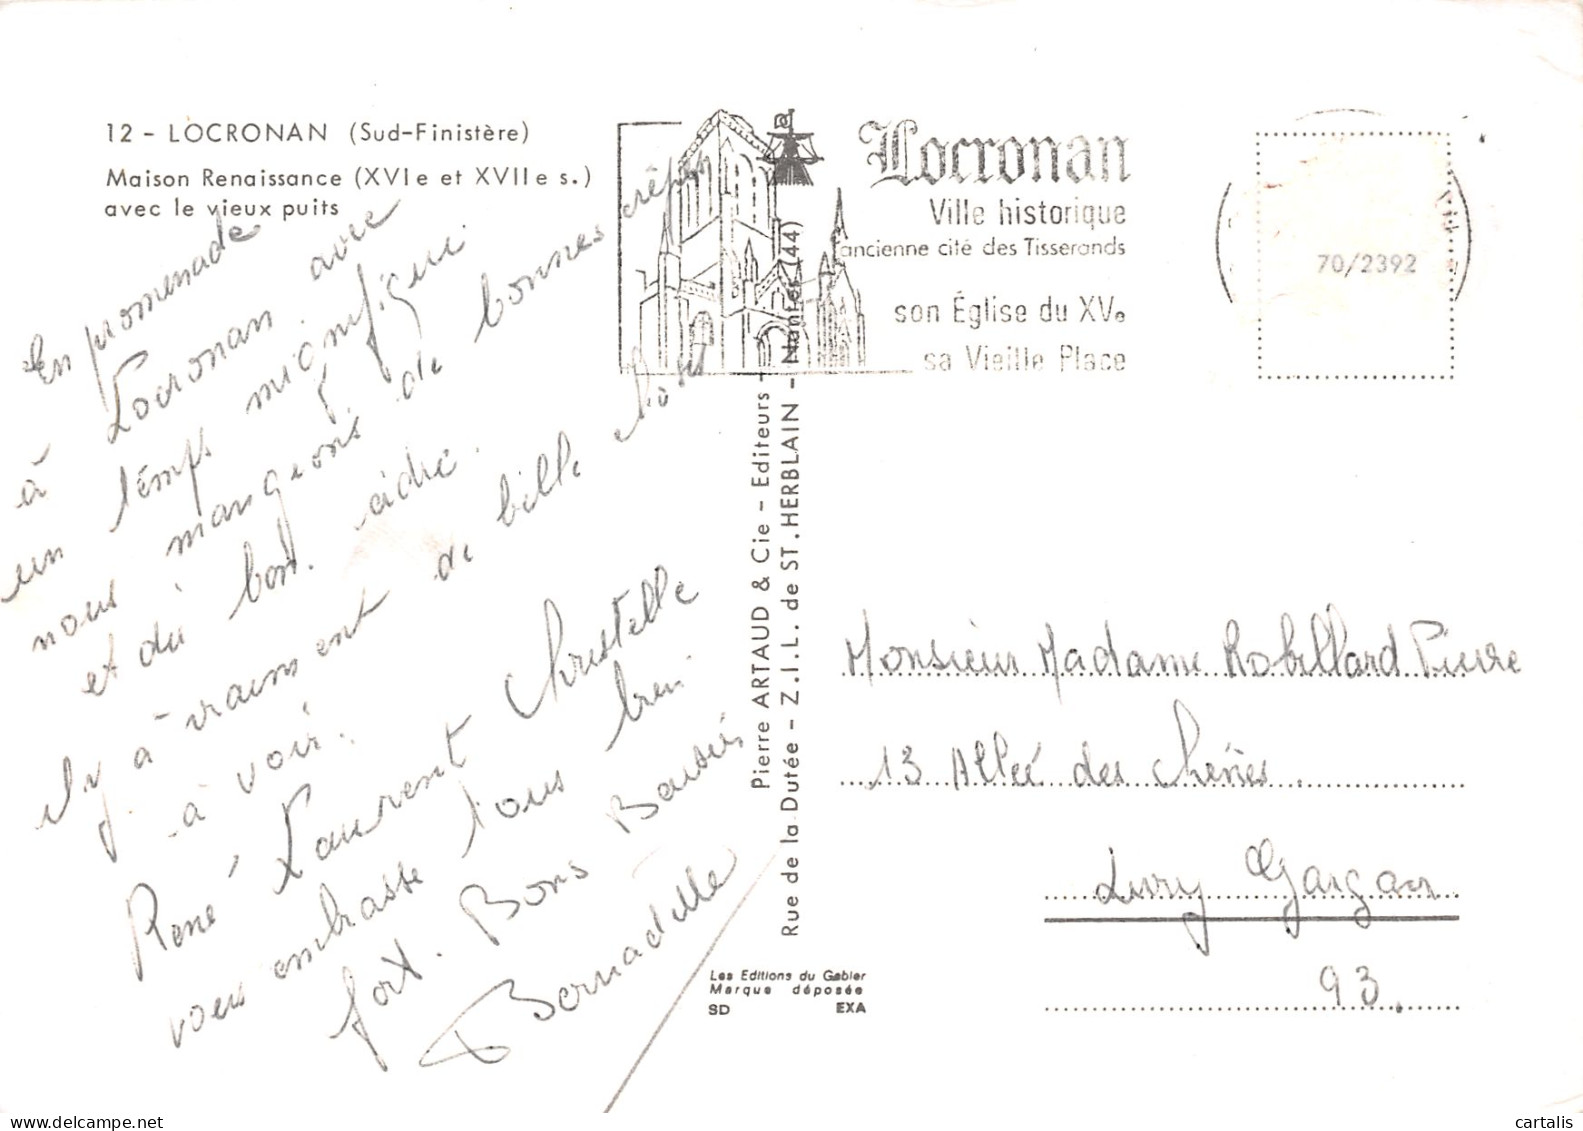 12 - LOCRONAN (Sud-Finistère)
Maison Renaissance (XVIe et XVIIe s.)
avec le vieux puits
En promenade
à Locronan avec
un temps magnifique.
nous mangeons de bonnes crêpes
et du bon cidre.
il y à vraiment de belle choses
à voir.
René Laurent Christelle
vous embrasse tous bien
fort. Bons Baisers
Bernadette
Locronan
Ville historique
ancienne cité des Tisserands
son Église du XVe
sa Vieille Place
70/2392
Pierre ARTAUD & Cie - Editeurs -
Rue de la Dutée - Z.I.L. de ST. HERBLAIN - Nantes (44)
Les Editions du Gabier
Marque déposée
SD EXA
Monsieur Madame Robillard Pierre
13 Allée des Chênes.
Livry Gargan
93.
delcampe.net
cartalis